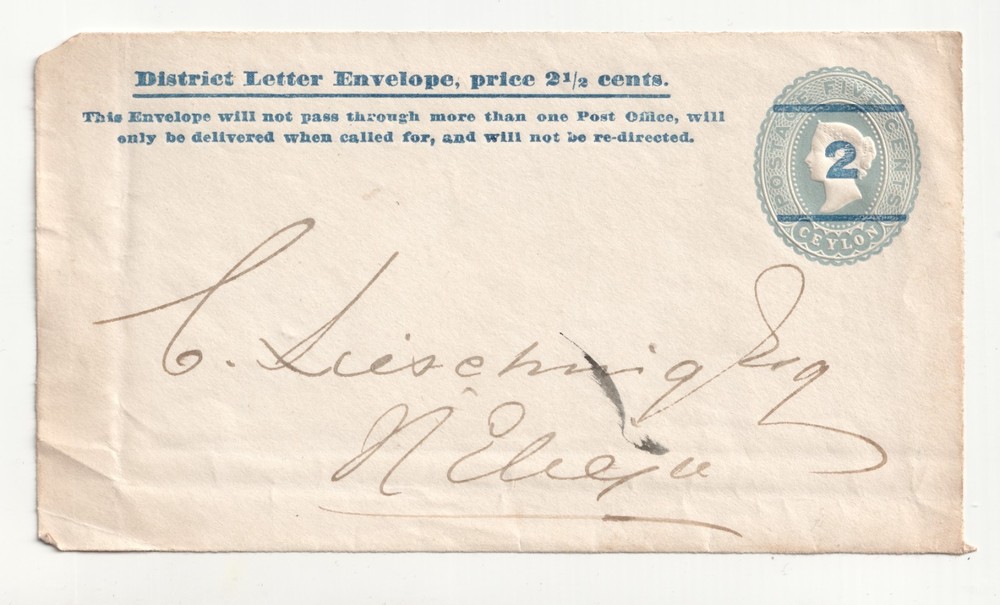 District Letter Envelope, price 2½ cents.
This Envelope will not pass through more than one Post Office, will
only be delivered when called for, and will not be re-directed.
POSTAGE FIVE CENTS
2
CEYLON
C. Lieschwig Esq
N' Eleya